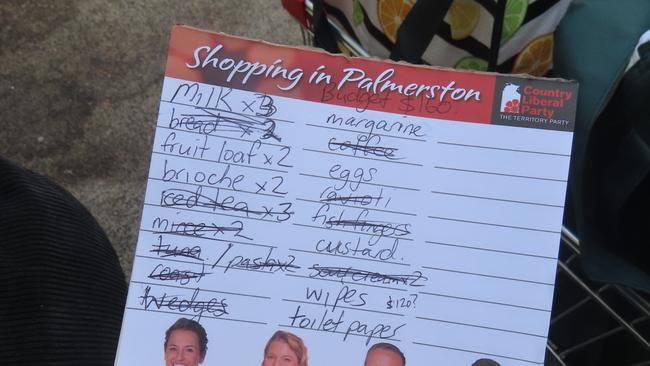 Shopping in Palmerston
Budget $160
Country
Liberal
Party
THE TERRITORY PARTY
Milk x3
bread x 2
fruit loaf x 2
brioche x2
iced tea x 3
mince x 2
tuna / pash x2
roast
wedges
margarine
coffee
eggs
ravioti
fish fingers
custard.
sour cream x 2
wipes $120?
toilet paper